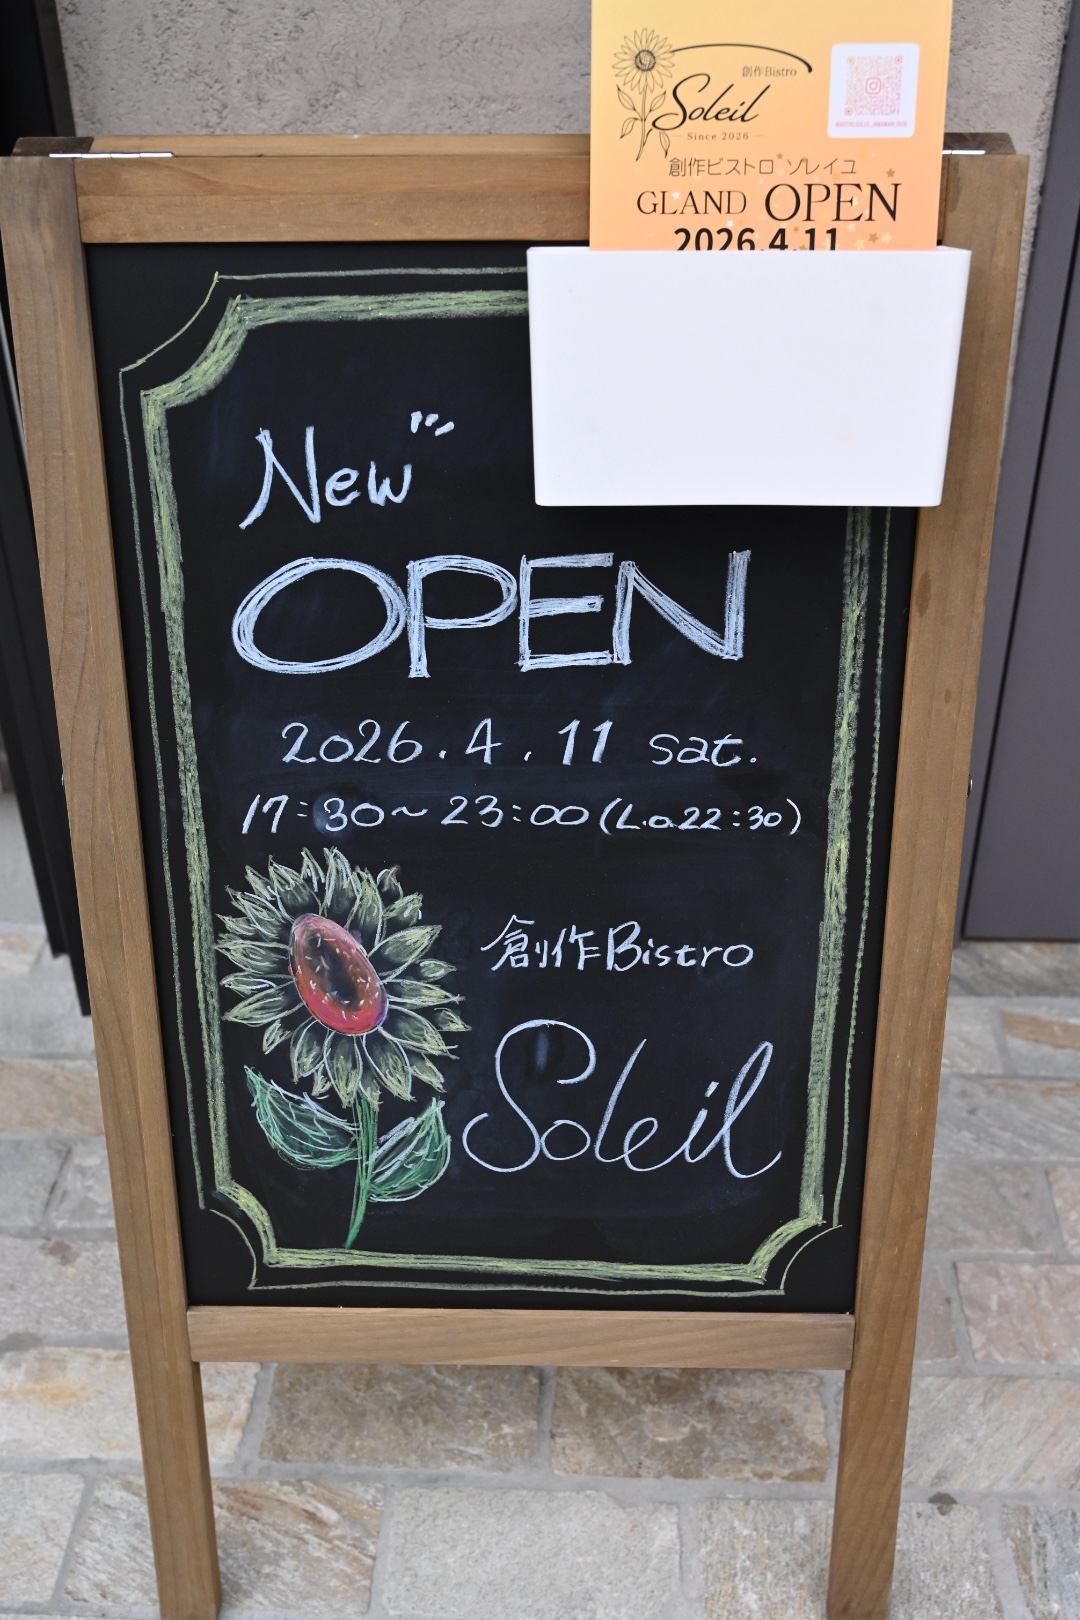 創作Bistro
Soleil
Since 2026
創作ビストロ ソレイユ
GLAND OPEN
2026.4.11
New
OPEN
2026.4.11 sat.
17:30~23:00(L.o.22:30)
創作Bistro
Soleil